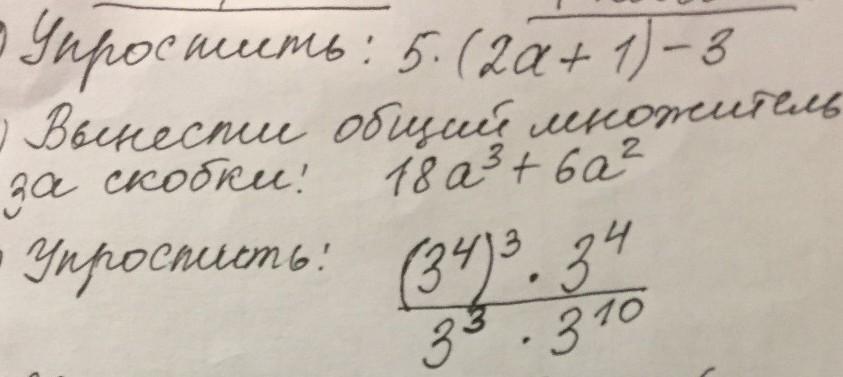 ) Упростить: 5·(2a + 1) − 3
) Вынести общий множитель
за скобки: 18a³ + 6a²
) Упростить: (3⁴)³ · 3⁴
3³ · 3¹⁰